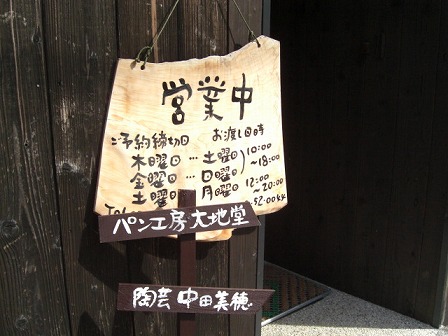 営業中
ご予約締切日 お渡し日時
木曜日…土曜日 10:00
金曜日…日曜日 ~18:00
土曜日 月曜日 12:00
~20:00
Tel
パン工房 大地堂
陶芸 中田美穂